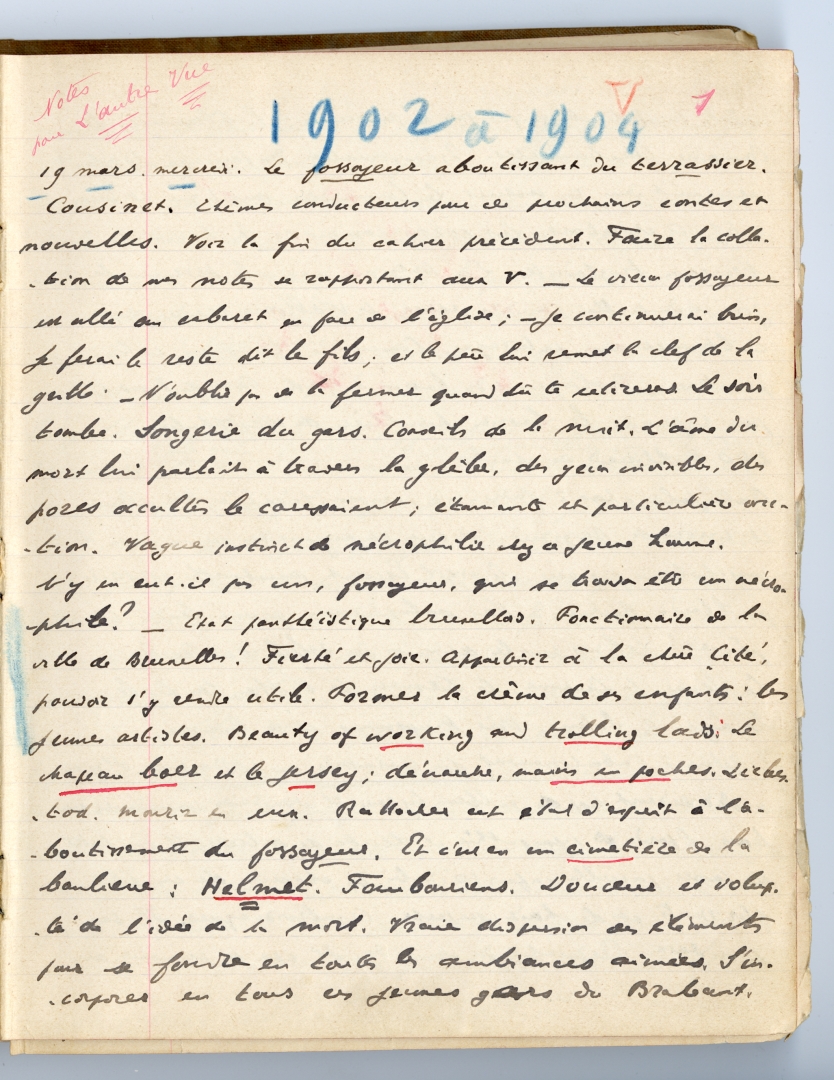 Notes
pour L'autre Vue
1902 à 1904 V 1
19 mars. mercredi. Le fossoyeur aboutissant du terrassier.
Cousinet. Thèmes conducteurs pour de prochains contes et
nouvelles. Voir la fin du cahier précédent. Faire la colla-
-tion de mes notes se rapportant aux V. — Le vieux fossoyeur
est allé au cabaret en face de l'église; — Je continuerai bien,
je ferai le reste dit le fils; et le père lui remet la clef de la
grille. — N'oublie pas de la fermer quand tu te retireras. Le soir
tombe. Songerie du gars. Conseils de la nuit. L'âme du
mort lui parlait à travers la glèbe, des yeux invisibles, des
pores occultes le caressaient; étonnante et particulière
-tion. Vague instinct de nécrophilie chez ce jeune homme.
N'y en eut-il pas un, fossoyeur, qui se trouva être un nécro-
-phile? — Etat panthéistique bruxellois. Fonctionnaire de la
ville de Bruxelles! Fierté et joie. Appartenir à la chère Cité,
pouvoir s'y rendre utile. Former la crème de ses enfants: les
jeunes artistes. Beauty of working and trolling lads: Le
chapeau boer et le jersey; démarche, mains en poches. Liebes-
-tod. Mourir en eux. Rattacher cet état d'esprit à l'a-
-boutissement du fossoyeur. Et ceci en un cimetière de la
banlieue: Helmet. Faubouriens. Douceur et volup-
-té de l'idée de la mort. Vraie dispersion des éléments
pour se fondre en toutes les ambiances aimées. S'in-
-corporer en tous ces jeunes gars du Brabant.